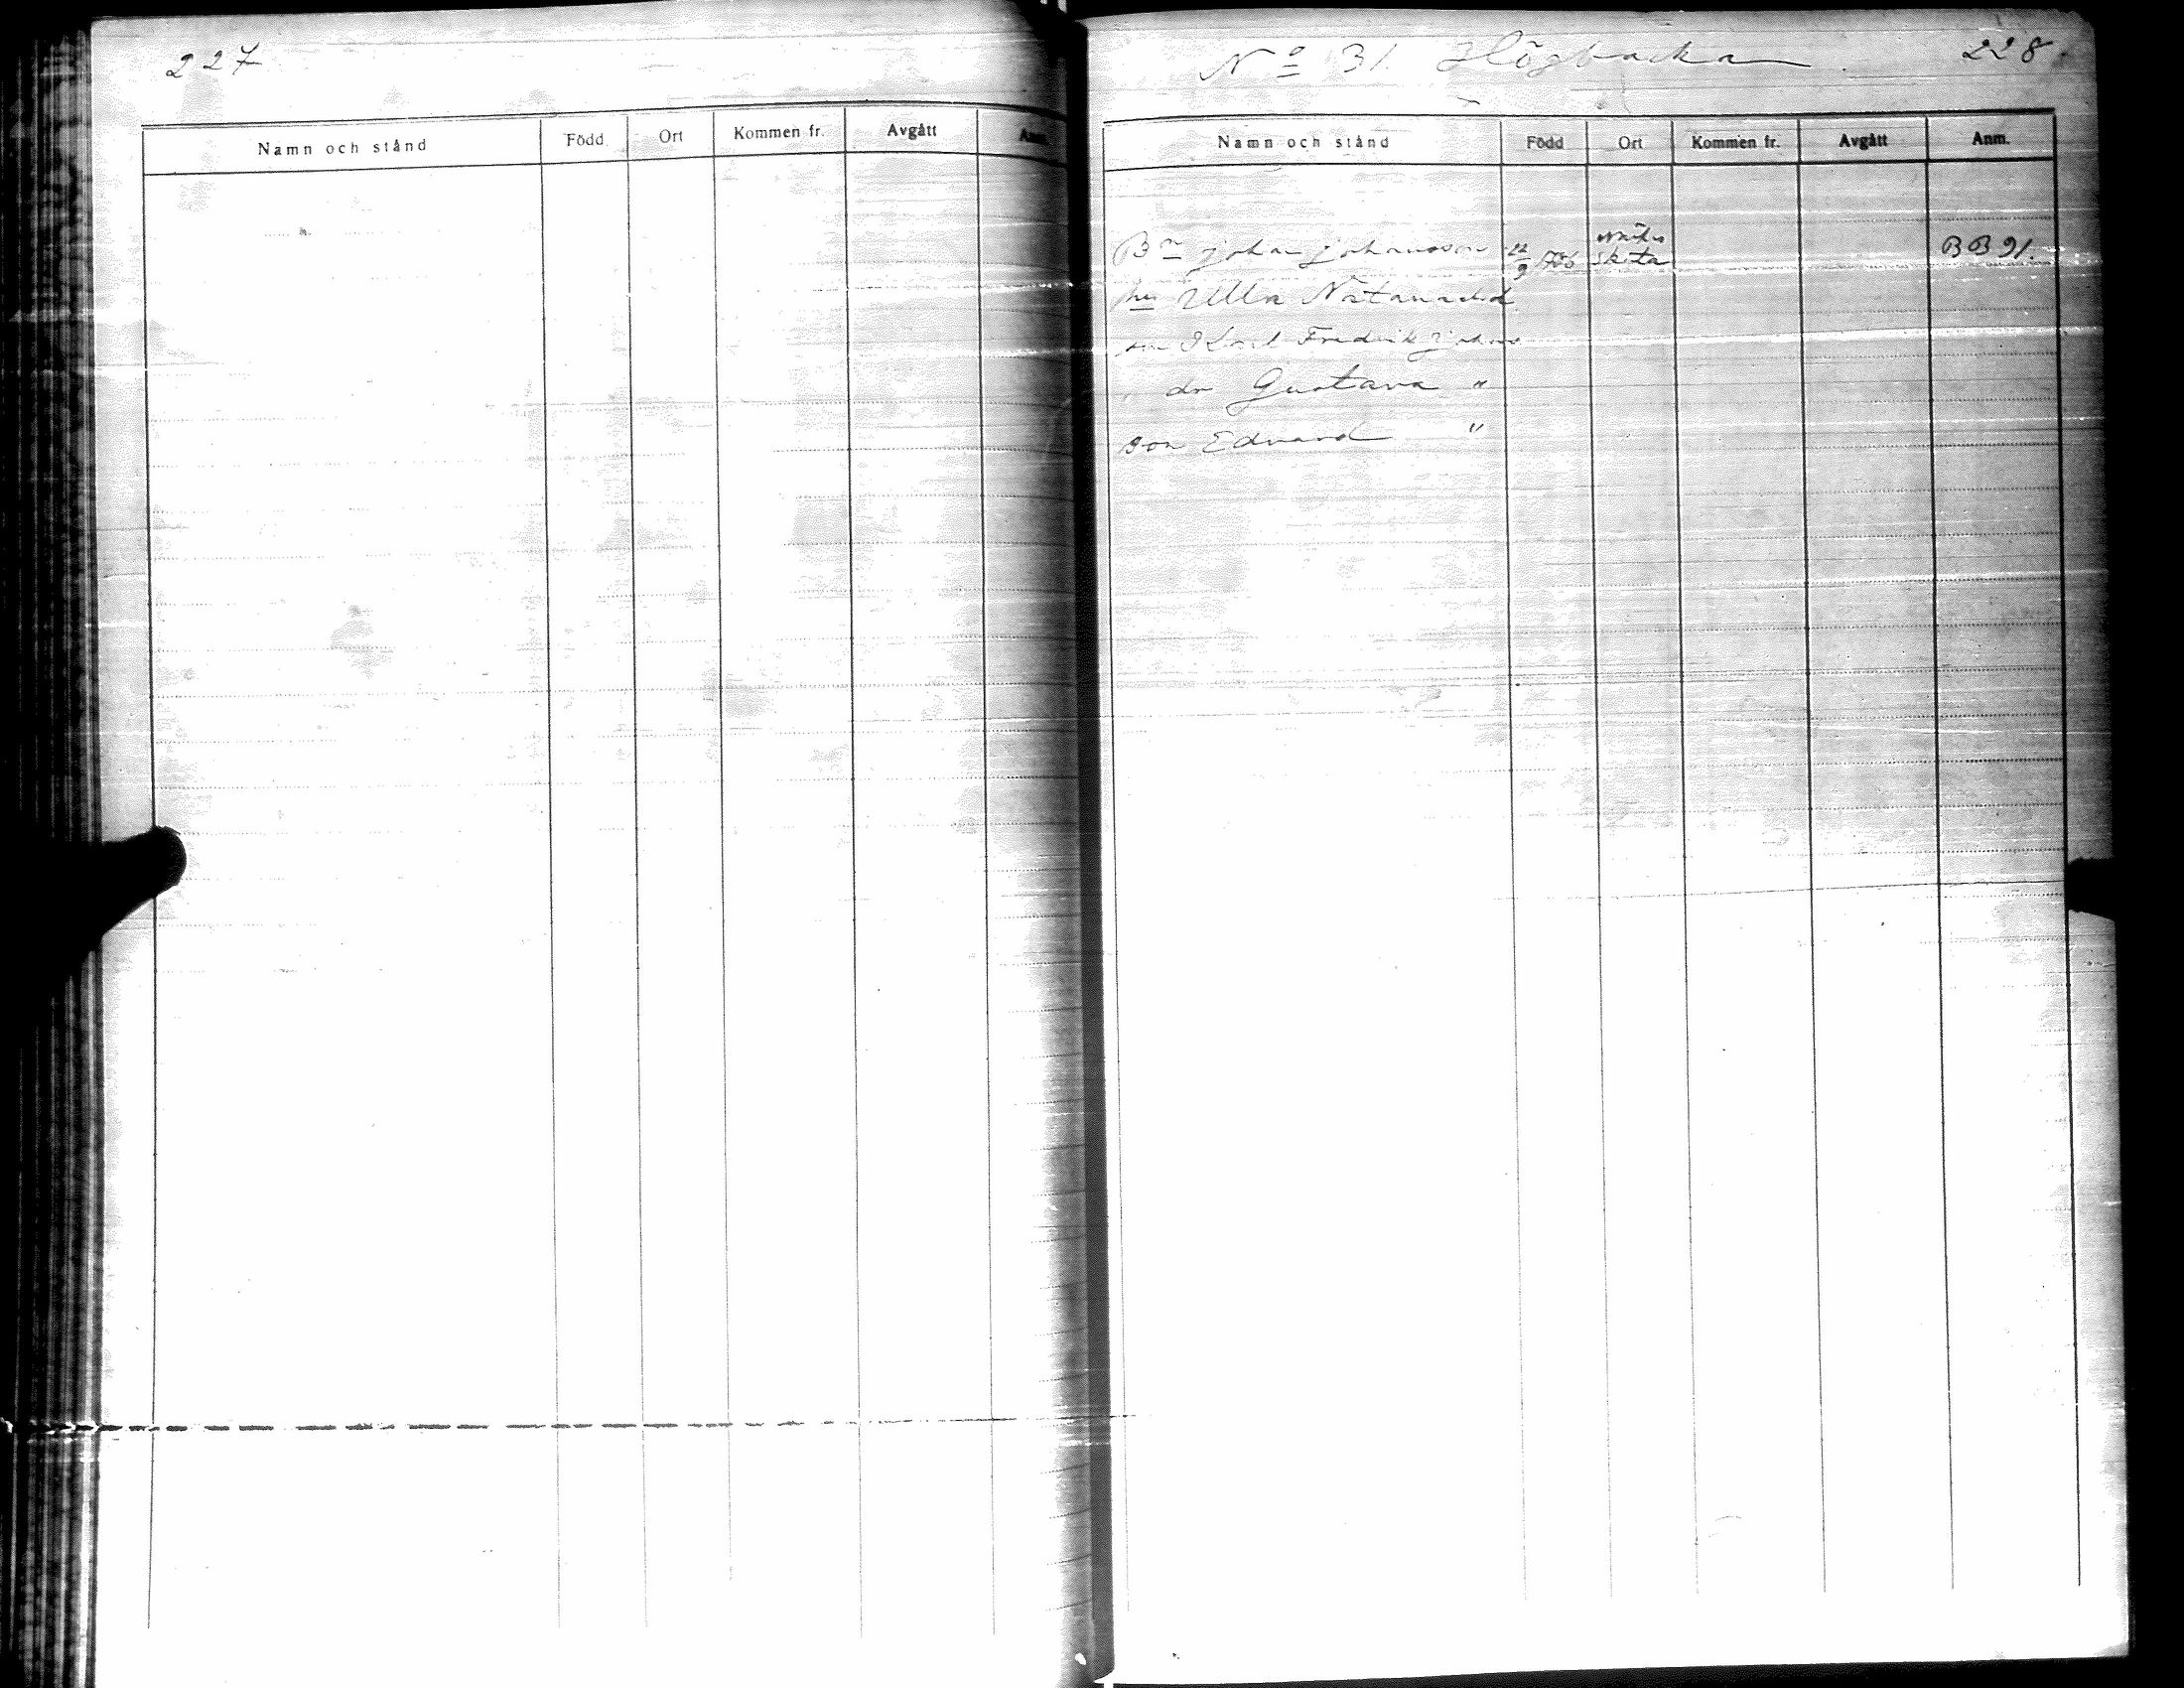 227
Namn och stånd Född Ort Kommen fr. Avgått Anm.
No 31. Högbacka 228.
Namn och stånd Född Ort Kommen fr. Avgått Anm.
Bn Johan Johansson 9 1786 Skita B B 91.
hu Ulla Natanaelsd
son Karl Fredrik Johns
dr Gustava "
son Edvard "